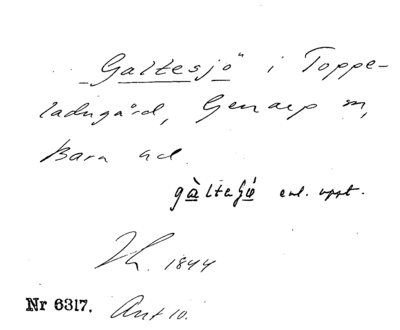 "Galtesjö" i Toppe-
ladugård, Genarp sn,
Bara hd.
gàltesjö enl. uppt.
1844
Nr 6317. Ant 10.